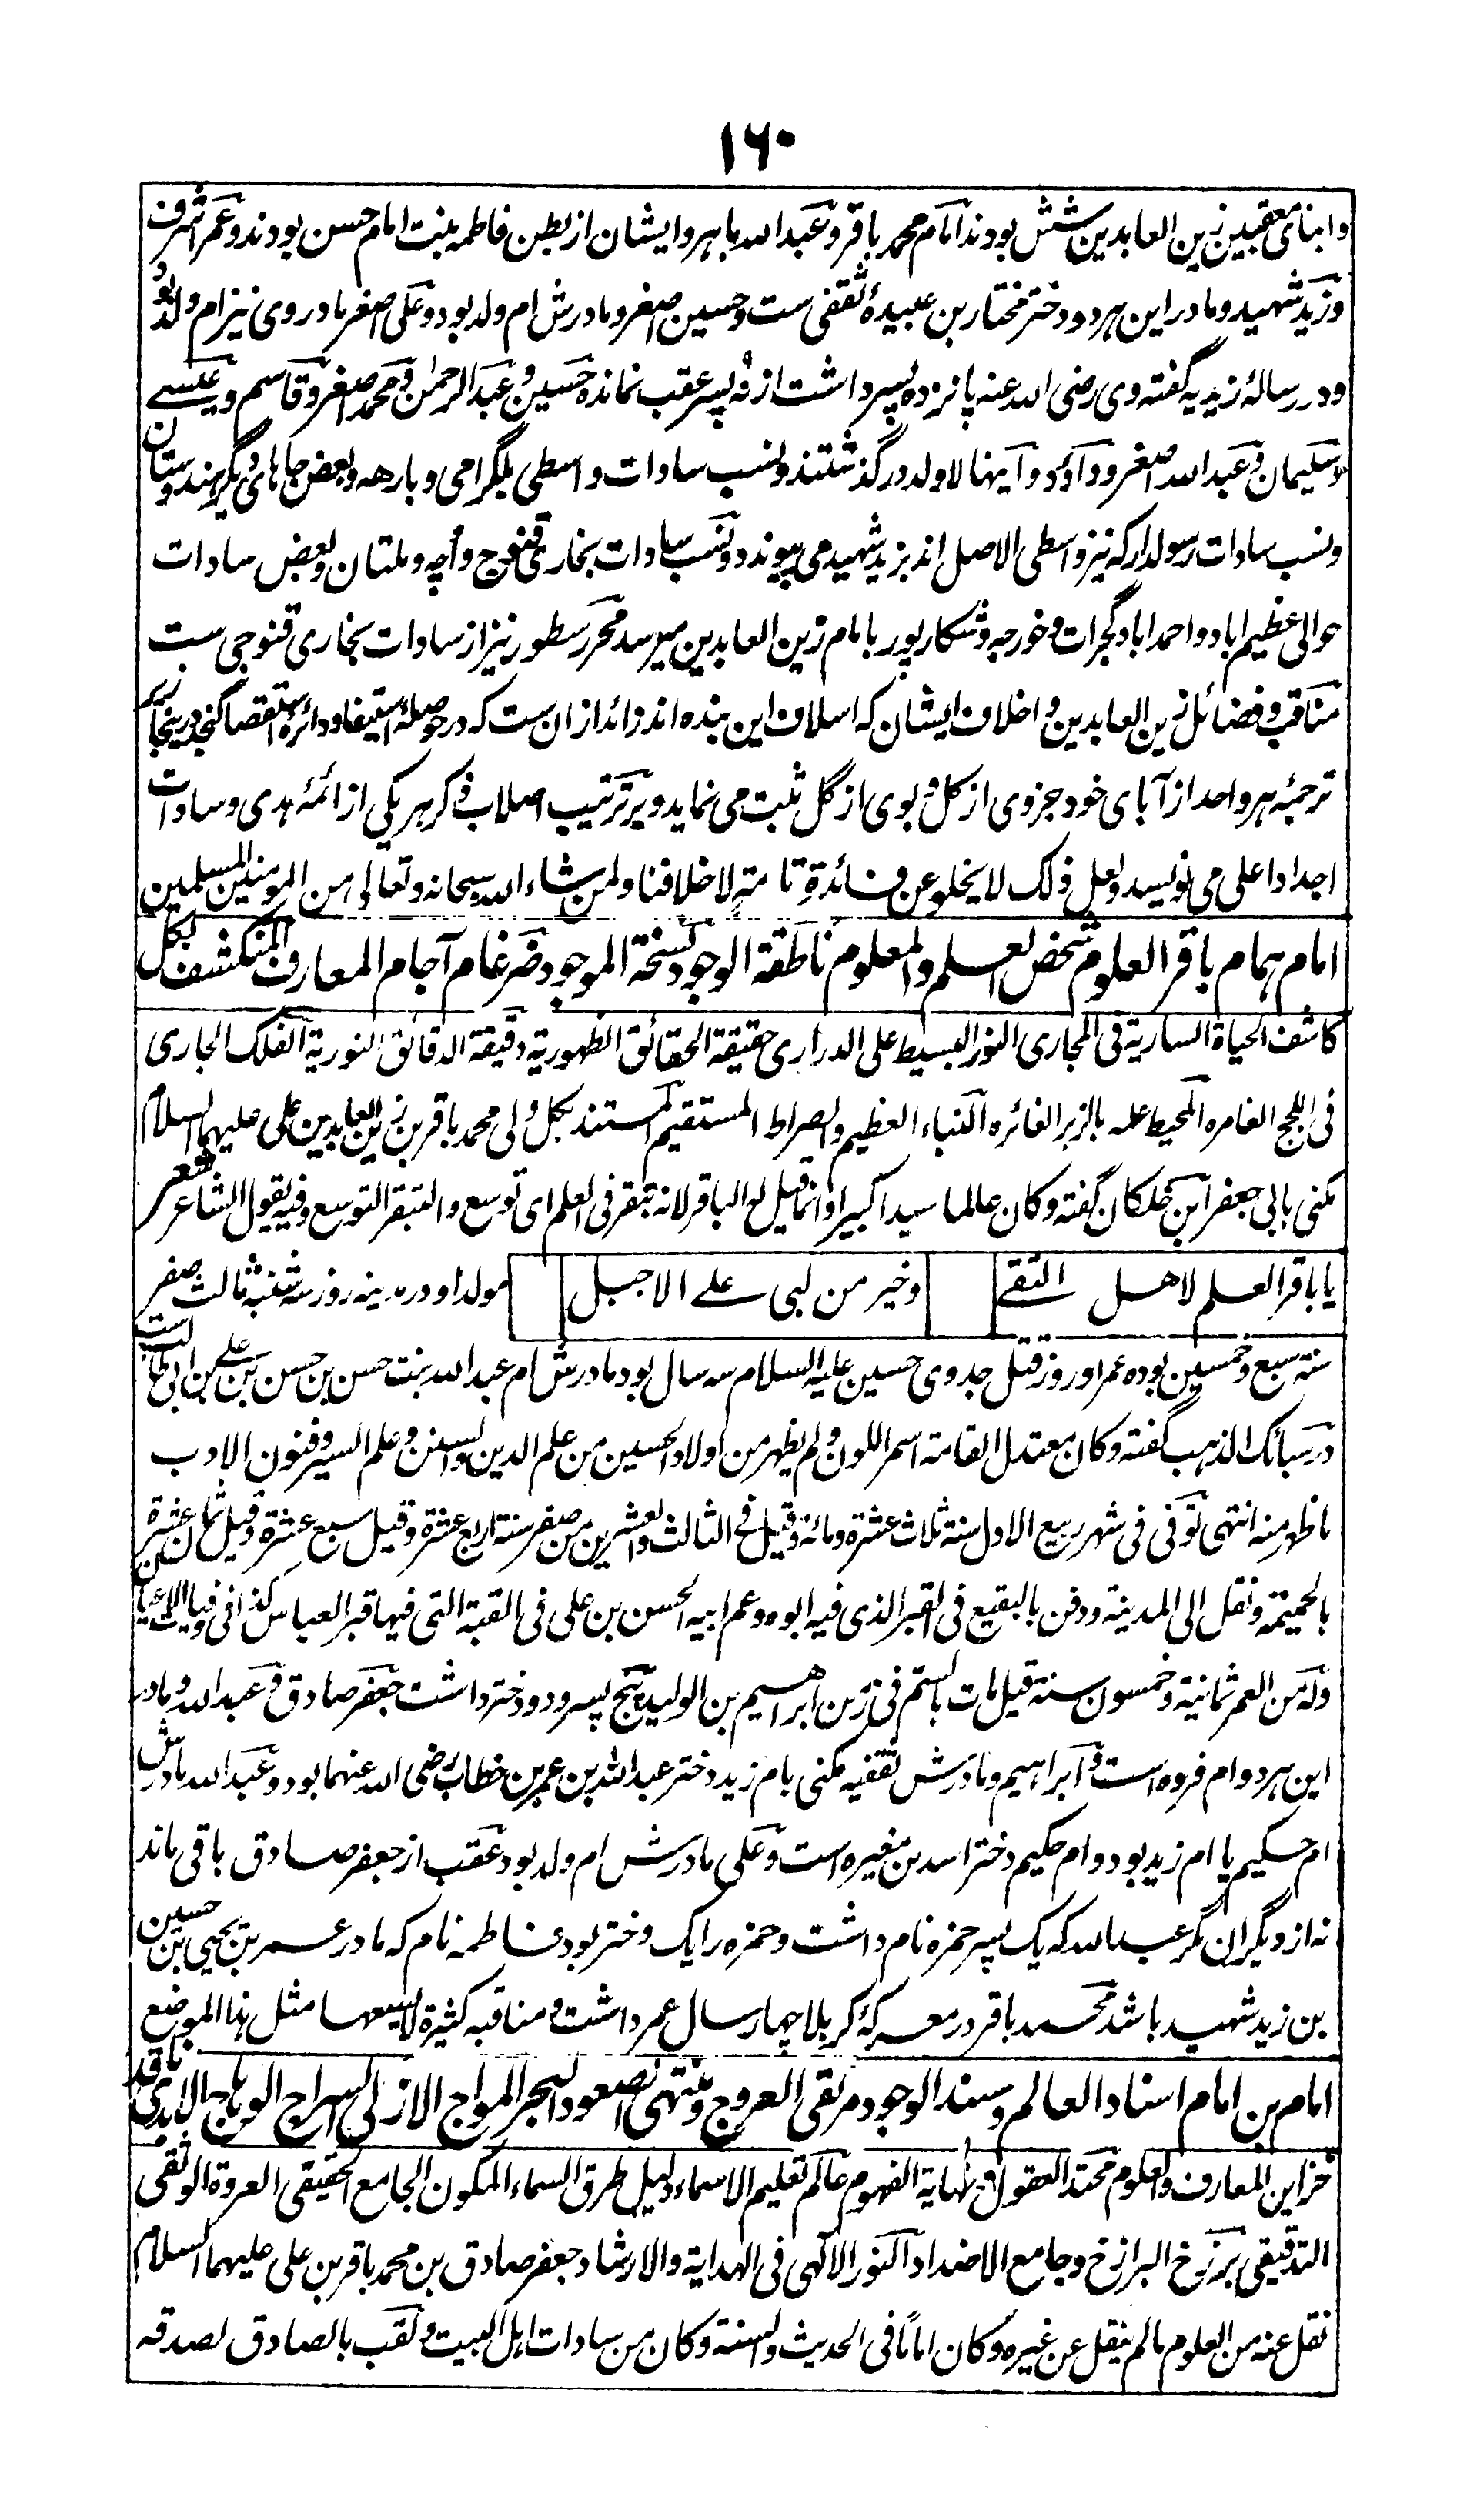 ۱۶۰
وابنای معقبین زین العابدین شش بودند امام محمد باقر و عبد الله باهر و ایشان از بطن فاطمه بنت امام حسن بودند و عمر اشرف
و زید شهید و مادر این هر دو دختر مختار بن عبیدهٔ ثقفی ست و حسین اصغر و مادرش ام ولد بود و علی اصغر مادر وی نیز ام ولد بود
و در رسالهٔ زیدیه گفته وی رضی الله عنه پانزده پسر داشت از نه پسر عقب نمانده حسین و عبد الرحمٰن و محمد اصغر و قاسم و عیسے
و سلیمان و عبد الله اصغر و داؤد و اینها لا ولد در گذشتند و نسب سادات واسطی بلگرامی و بارهه و بعض جاهای دیگر هندوستان
و نسب سادات رسولدار که نیز واسطی الاصل اند بزید شهید می پیوندد و نسب سادات بخاری قنوج و اُچه و ملتان و بعض سادات
حوالی عظیم اباد و احمد اباد گجرات و خورجه و شکارپور بامام زین العابدین میرسد محرر سطور نیز از سادات بخاری قنوجی ست
مناقب و فضائل زین العابدین و اخلاف ایشان که اسلاف این بنده اند زائد از ان ست که در حوصلهٔ استیفا و دائرهٔ استقصا گنجد در ینجا
ترجمهٔ هر واحد از آبای خود جزوی از کل و بوی از گل ثبت می نماید و بر ترتیب اصلاب ذکر هر یکی از ائمهٔ هدی و سادات
اجداد اعلی می نویسد ولعل ذلک لا یخلو عن فائدةٍ تامةٍ لاخلافنا ولمن شاء الله سبحانه وتعالی من المومنین المسلمین
امام همام باقر العلوم شخص العلم والمعلوم ناطقة الوجود نسخة الموجود ضرغام آجام المعارف المنکشف لکل
کاشف الحیاة الساریة فی المجاری النور البسیط علی الدراری حقیقة الحقائق الظهوریة دقیقة الدقائق النوریة الفلک الجاری
فی اللجج الغامره المحیط علمه بالزبر الغائره النباء العظیم والصراط المستقیم المستند لکل ولی محمد باقر بن زین العابدین علی علیهما السلام
مکنی بابی جعفر ابن خلکان گفته وکان عالما سیدا کبیرا وانما قیل له الباقر لانه تبقر فی العلم ای توسع والتبقر التوسع وفیه یقول الشاعر شعر
یا باقر العلم لاهل التقے وخیر من لبی علے الاجبل مولد او در مدینه روز سه شنبه ثالث صفر
سنة سبع وخمسین بوده عمر او روز قتل جد وی حسین علیه السلام سه سال بود مادرش ام عبد الله بنت حسن بن حسن بن علی بن ابی طالب است
در سبائک الذهب گفته وکان معتدل القامة اسمر اللون ولم یظهر من اولاد الحسین من علم الدین والسنن وعلم السیر وفنون الادب
ما ظهر منه انتهی توفی فی شهر ربیع الاول سنة ثلاث عشرة ومائة وقیل فی الثالث والعشرین من صفر سنة اربع عشرة وقیل سبع عشرة وقیل ثمان عشرة
بالحمیمة ونقل الی المدینة ودفن بالبقیع فی القبر الذی فیه ابوه وعم ابیه الحسن بن علی فی القبة التی فیها قبر العباس کذا فی وفیات الاعیان
وله من العمر ثمانیة وخمسون سنة قیل مات بالسم فی زمن ابراهیم بن الولید پنج پسر و دو دختر داشت جعفر صادق و عبد الله و مادر
این هر دو ام فروه است و ابراهیم و مادرش ثقفیه مکنی بام زید دختر عبد الله بن عمر بن خطاب رضی الله عنهما بود و عبد الله مادرش
ام حکیم یا ام زید بود و ام حکیم دختر اسد بن مغیره است و علی مادرش ام ولد بود عقب از جعفر صادق باقی ماند
نه از دیگران مگر عبد الله که یک پسر حمزه نام داشت و حمزه را یک دختر بودی فاطمه نام که مادر عمر بن یحیی بن حسین
بن زید شهید باشد محمد باقر در معرکهٔ کربلا چهار سال عمر داشت و مناقبه کثیرة لا یسعها مثل هذا الموضع
امام بن امام استاد العالم و سند الوجود مرتقی العروج ومنتهی الصعود البحر المواج الازلی السراج الوهاج الابدی ناقد
خزاین المعارف والعلوم محتد العقول ونهایة الفهوم عالم تعلیم الاسماء دلیل طرق السماء المکون الجامع الحقیقی العروة الوثقی
التدقیقی برزخ البرازخ وجامع الاضداد النور الالهی فی الهدایة والارشاد جعفر صادق بن محمد باقر بن علی علیهما السلام
نقل عنه من العلوم مالم ینقل عن غیره وکان اماماً فی الحدیث والسنة وکان من سادات اهل البیت ولقب بالصادق لصدقه